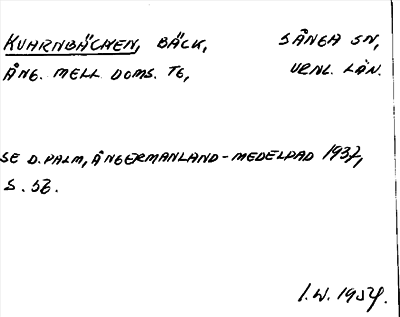 KVARNBÄCKEN, BÄCK, SÅNGA SN,
ÅNG. MELL. DOMS. TG, VRNL. LÄN.
SE D. PALM, ÅNGERMANLAND-MEDELPAD 1937,
S. 56.
I.W. 1954.